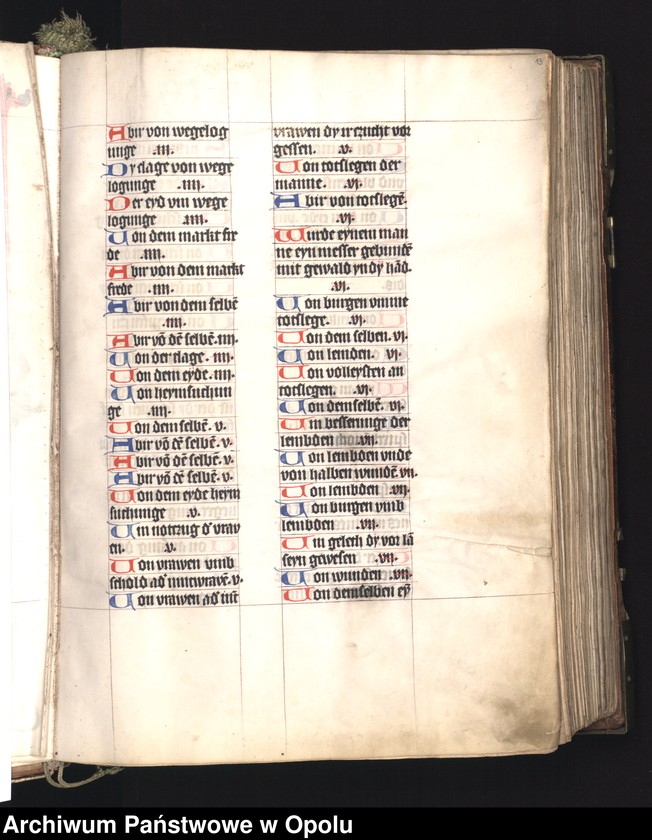 13
Abir von wegelog
unge .iii.
Dy clage von wege
logunge .iiii.
Der eyd vm wege
logunge .iiii.
Uon dem markt fre
de .iiii.
Abir von dem markt
frede .iiii.
Abir von dem selbē
.iiii.
Abir vō dē selbē. iiii.
Uon der clage. iiii.
Uon dem eyde. iiii.
Uon heymsuchun
ge .iiii.
Uon dem selbē. v.
Abir vō dē selbē. v.
Abir vō dē selbē. v.
Abir vō dē selbē. v.
Uon dem eyde heym
suchunge .v.
Um notczug d' vraw
en. .v.
Uon vrawen vmb
schold ad' iuncvrawē. v.
Uon vrawen ad'
vrawen dy ir czucht vor
gessen. .v.
Uon totslegen der
manne. .vi.
Abir von totslegē.
.vi.
Wurde eynem man
ne eyn messer gebundē
mit gewald yn dy hād.
.vi.
Uon burgen vmme
totslege. .vi.
Uon dem selben. vi.
Uon lemden. vi.
Uon volleysten an
totslegen. .vi.
Uon dem selbē. vi.
Um besserunge der
lembden .vii.
Uon lembden vnde
von halben wundē vii.
Uon lembden .vii.
Uon burgen vmb
lembden .vii.
Um gelech dy vor lā
seyn gewesen .vii.
Uon wunden .vii.
Uon demselben eȳ
Archiwum Państwowe w Opolu